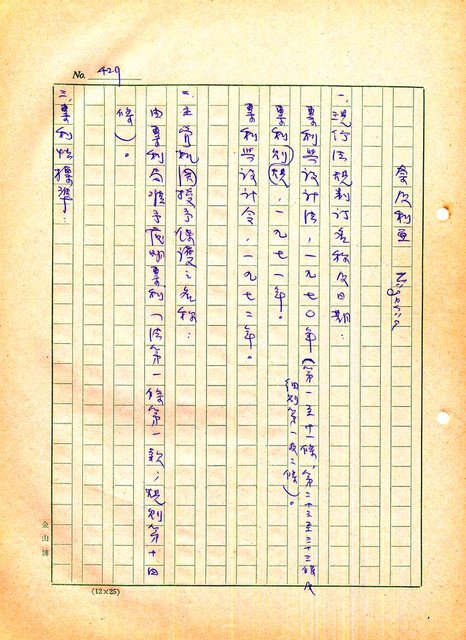 No. 429
奈及利亞 Nigeria
一、現行法規制訂名稱及日期：
專利與設計法，一九七〇年（第一至十一條、第二十三至三十三條及
細則第一及二條）。
專利規則，一九七一年。
專利與設計令，一九七二年。
二、主管機關授予保護之名稱：
由專利局准予
專利（法第一條第一款；規則第十四
條）。
三、專利性標準：
(12×25)